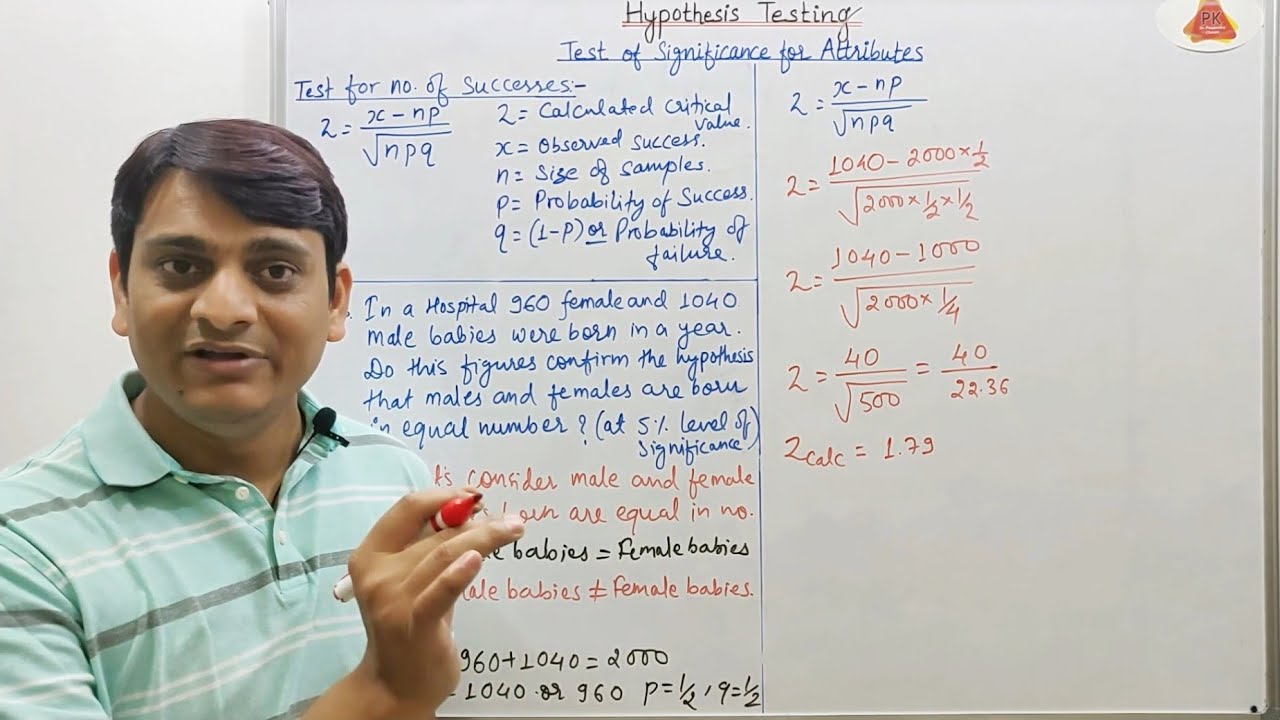 Hypothesis Testing
PK
Test of Significance for Attributes
Test for no. of Successes:-
Z = x - np / √npq
Z = Calculated critical value.
x = Observed success.
n = Size of samples.
p = Probability of Success.
q = (1-p) or Probability of failure.
In a Hospital 960 female and 1040
male babies were born in a year.
Do this figures confirm the hypothesis
that males and females are born
in equal number? (at 5% level of
Significance)
consider male and female
born are equal in no.
babies = Female babies
ale babies ≠ Female babies.
960+1040 = 2000
= 1040 or 960 p=1/2, q=1/2
Z = x - np / √npq
Z = 1040 - 2000 × 1/2 / √2000 × 1/2 × 1/2
Z = 1040 - 1000 / √2000 × 1/4
Z = 40 / √500 = 40 / 22.36
Zcalc = 1.79